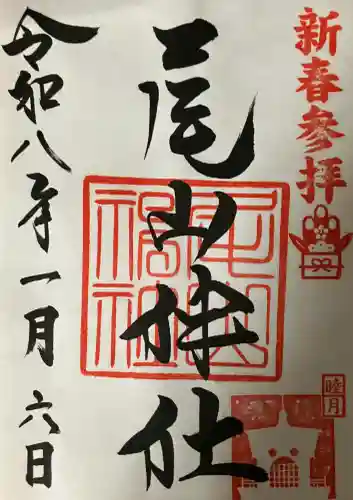 新春參拝
睦月
尾山神社
尾山
神社
令和八年一月六日